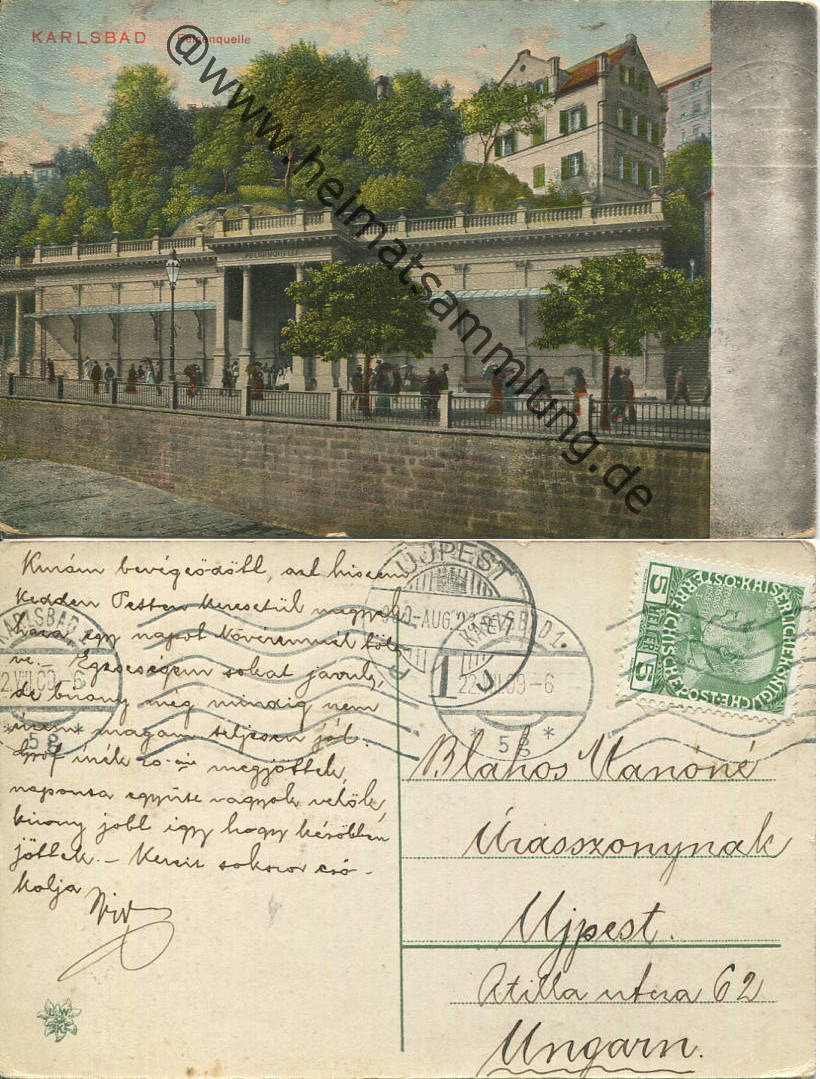 KARLSBAD Felsenquelle
@www.heimatsammlung.de
FELSENQUELLE
Kurám bevégződött, azt hiszem
kedden Pesten keresztül
egy napot Nővéremnél
ve. – Egészségem sokat javult,
de bizony még mindig nem
magam teljesen jól.
Gróf inék 20-án megjöttek,
naponta együtt vagyok velök,
bizony jobb így hogy később
jöttek. – Kezeit sokszor csó-
kolja
KARLSBAD
22.VIII.09-6
* 5g *
UJPEST
909-AUG.23
KARLSBAD 1.
22.VIII.09-6
* 5g *
5 HELLER 5
KAISERLICHE KÖNIGLICHE ÖSTERREICHISCHE POST
Blahos Manóné
Úrasszonynak
Ujpest.
Atilla utcza 62
Ungarn.
L.W.
K.